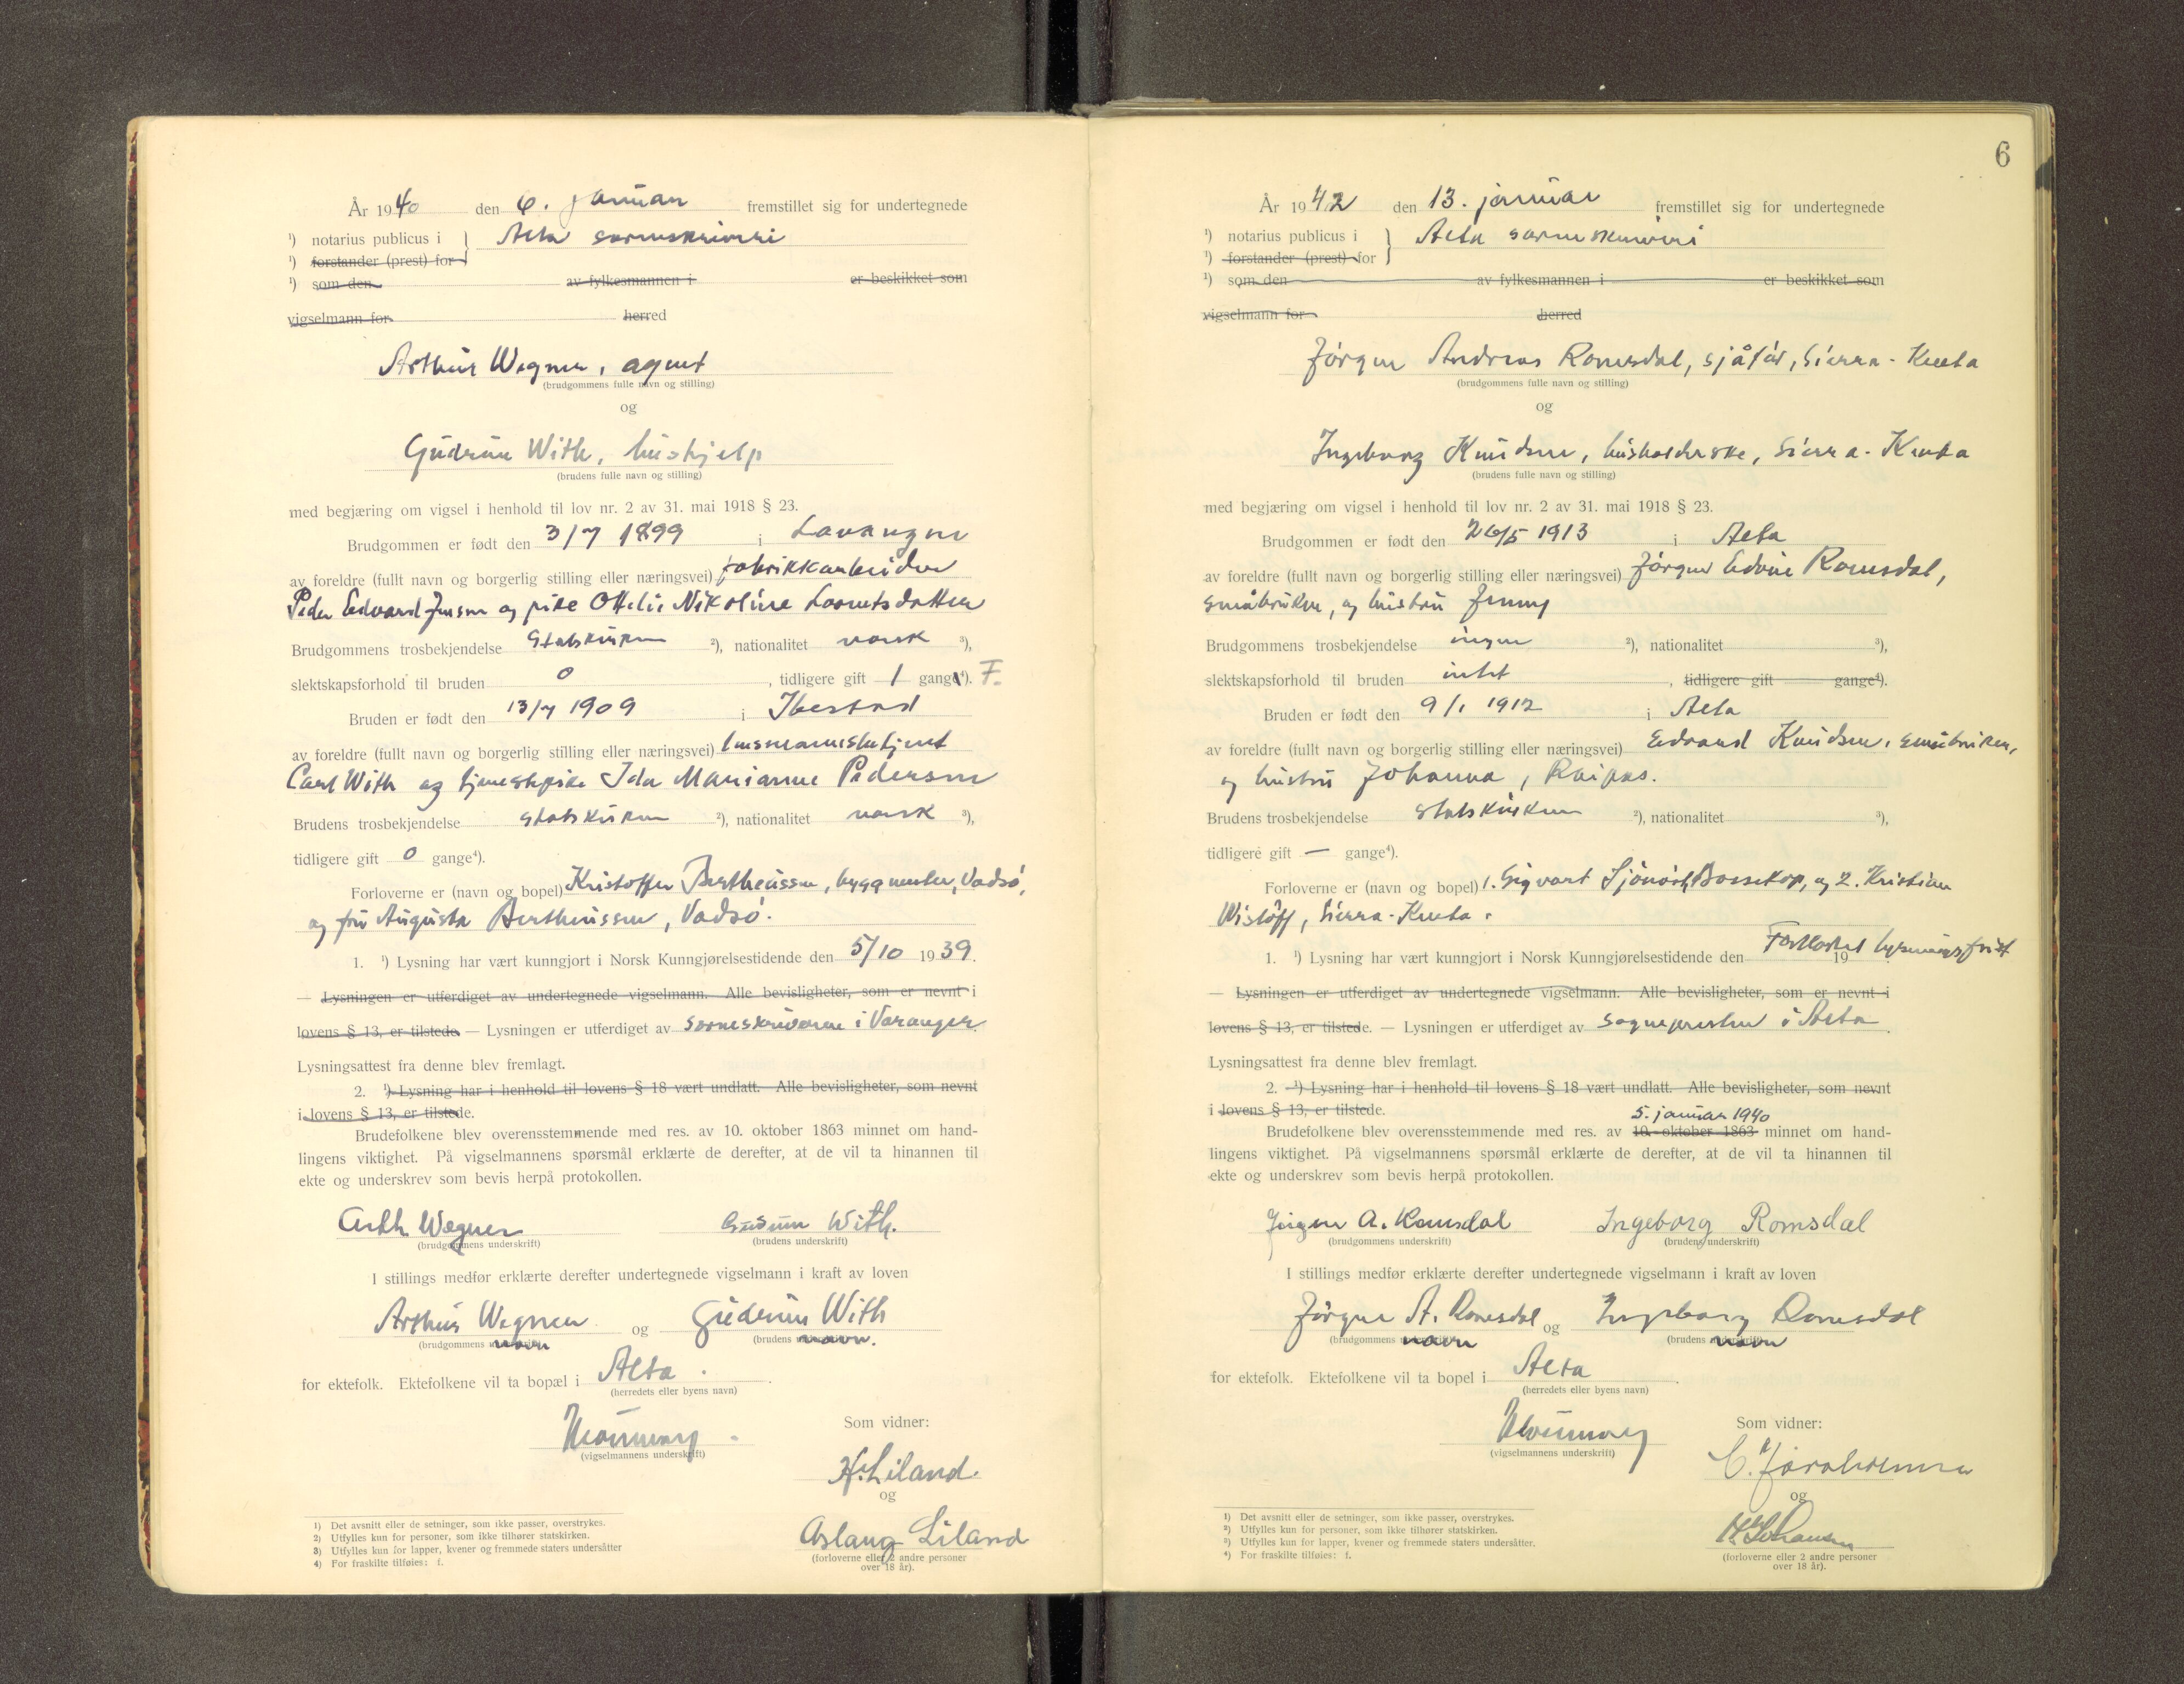 År 1940 den 6. januar fremstillet sig for undertegnede
¹) notarius publicus i } Alta sorenskriveri
¹) forstander (prest) for
¹) som den av fylkesmannen i er beskikket som
vigselmann for herred
Arthur Wegner, agent
(brudgommens fulle navn og stilling)
og
Gudrun With, hushjelp
(brudens fulle navn og stilling)
med begjæring om vigsel i henhold til lov nr. 2 av 31. mai 1918 § 23.
Brudgommen er født den 3/7 1899 i Lavangen
av foreldre (fullt navn og borgerlig stilling eller næringsvei) fabrikkarbeider
Peder Edvard Jensen og pike Ottelie Nikoline Lorentsdatter
Brudgommens trosbekjendelse Statskirken ²), nationalitet norsk ³),
slektskapsforhold til bruden 0, tidligere gift 1 gang ⁴). F.
Bruden er født den 13/7 1909 i Ibestad
av foreldre (fullt navn og borgerlig stilling eller næringsvei) lensmannsbetjent
Carl With og tjenestepike Ida Marianne Pedersen
Brudens trosbekjendelse Statskirken ²), nationalitet norsk ³),
tidligere gift 0 gange⁴).
Forloverne er (navn og bopel) Kristoffer Bertheussen, byggmester, Vadsø,
og fru Augusta Bertheussen, Vadsø.
1. ¹) Lysning har vært kunngjort i Norsk Kunngjørelsestidende den 5/10 1939.
— Lysningen er utferdiget av undertegnede vigselmann. Alle bevisligheter, som er nevnt i
lovens § 13, er tilstede. — Lysningen er utferdiget av sorenskriveren i Varanger.
Lysningsattest fra denne blev fremlagt.
2. ¹) Lysning har i henhold til lovens § 18 vært undlatt. Alle bevisligheter, som nevnt
i lovens § 13, er tilstede.
Brudefolkene blev overensstemmende med res. av 10. oktober 1863 minnet om hand-
lingens viktighet. På vigselmannens spørsmål erklærte de derefter, at de vil ta hinannen til
ekte og underskrev som bevis herpå protokollen.
Arth Wegner Gudrun With.
(brudgommens underskrift) (brudens underskrift)
I stillings medfør erklærte derefter undertegnede vigselmann i kraft av loven
Arthur Wegner og Gudrun With
(brudgommens navn (brudens navn.
for ektefolk. Ektefolkene vil ta bopæl i Alta.
(herredets eller byens navn)
Som vidner:
(vigselmannens underskrift)
H. Liland.
og
Aslaug Liland
(forloverne eller 2 andre personer
over 18 år).
1) Det avsnitt eller de setninger, som ikke passer, overstrykes.
2) Utfylles kun for personer, som ikke tilhører statskirken.
3) Utfylles kun for lapper, kvener og fremmede staters undersåtter
4) For fraskilte tilføies: f.
6
År 1942 den 13. januar fremstillet sig for undertegnede
¹) notarius publicus i } Alta sorenskriveri
¹) forstander (prest) for
¹) som den av fylkesmannen i er beskikket som
vigselmann for herred
Jørgen Andreas Romsdal, sjåfør, Sierra-Kveta
(brudgommens fulle navn og stilling)
og
Ingeborg Knudsen, husholderske, Sierra-Kveta
(brudens fulle navn og stilling)
med begjæring om vigsel i henhold til lov nr. 2 av 31. mai 1918 § 23.
Brudgommen er født den 26/5 1913 i Alta
av foreldre (fullt navn og borgerlig stilling eller næringsvei) Jørgen Edvin Romsdal,
småbruker, og hustru Jenny
Brudgommens trosbekjendelse ingen ²), nationalitet ³),
slektskapsforhold til bruden intet, tidligere gift gange⁴).
Bruden er født den 9/1 1912 i Alta
av foreldre (fullt navn og borgerlig stilling eller næringsvei) Edvard Knudsen, småbruker,
og hustru Johanna, Raipas.
Brudens trosbekjendelse statskirken ²), nationalitet ³),
tidligere gift — gange⁴).
Forloverne er (navn og bopel) 1. Sigvart Bossekop, og 2. Kristian
Wisløff, Sierra-Kveta.
1. ¹) Lysning har vært kunngjort i Norsk Kunngjørelsestidende den 19 Forkortet lysningsfrist
— Lysningen er utferdiget av undertegnede vigselmann. Alle bevisligheter, som er nevnt i
lovens § 13, er tilstede. — Lysningen er utferdiget av sognepresten i Alta.
Lysningsattest fra denne blev fremlagt.
2. ¹) Lysning har i henhold til lovens § 18 vært undlatt. Alle bevisligheter, som nevnt
i lovens § 13, er tilstede.
5. januar 1940
Brudefolkene blev overensstemmende med res. av 10. oktober 1863 minnet om hand-
lingens viktighet. På vigselmannens spørsmål erklærte de derefter, at de vil ta hinannen til
ekte og underskrev som bevis herpå protokollen.
Jørgen A. Romsdal Ingeborg Romsdal
(brudgommens underskrift) (brudens underskrift)
I stillings medfør erklærte derefter undertegnede vigselmann i kraft av loven
Jørgen A. Romsdal og Ingeborg Romsdal
(brudgommens navn (brudens navn
for ektefolk. Ektefolkene vil ta bopel i Alta.
(herredets eller byens navn)
Som vidner:
(vigselmannens underskrift)
og
(forloverne eller 2 andre personer
over 18 år).
¹) Det avsnitt eller de setninger, som ikke passer, overstrykes.
²) Utfylles kun for personer, som ikke tilhører statskirken.
³) Utfylles kun for lapper, kvener og fremmede staters undersåtter.
⁴) For fraskilte tilføies: f.